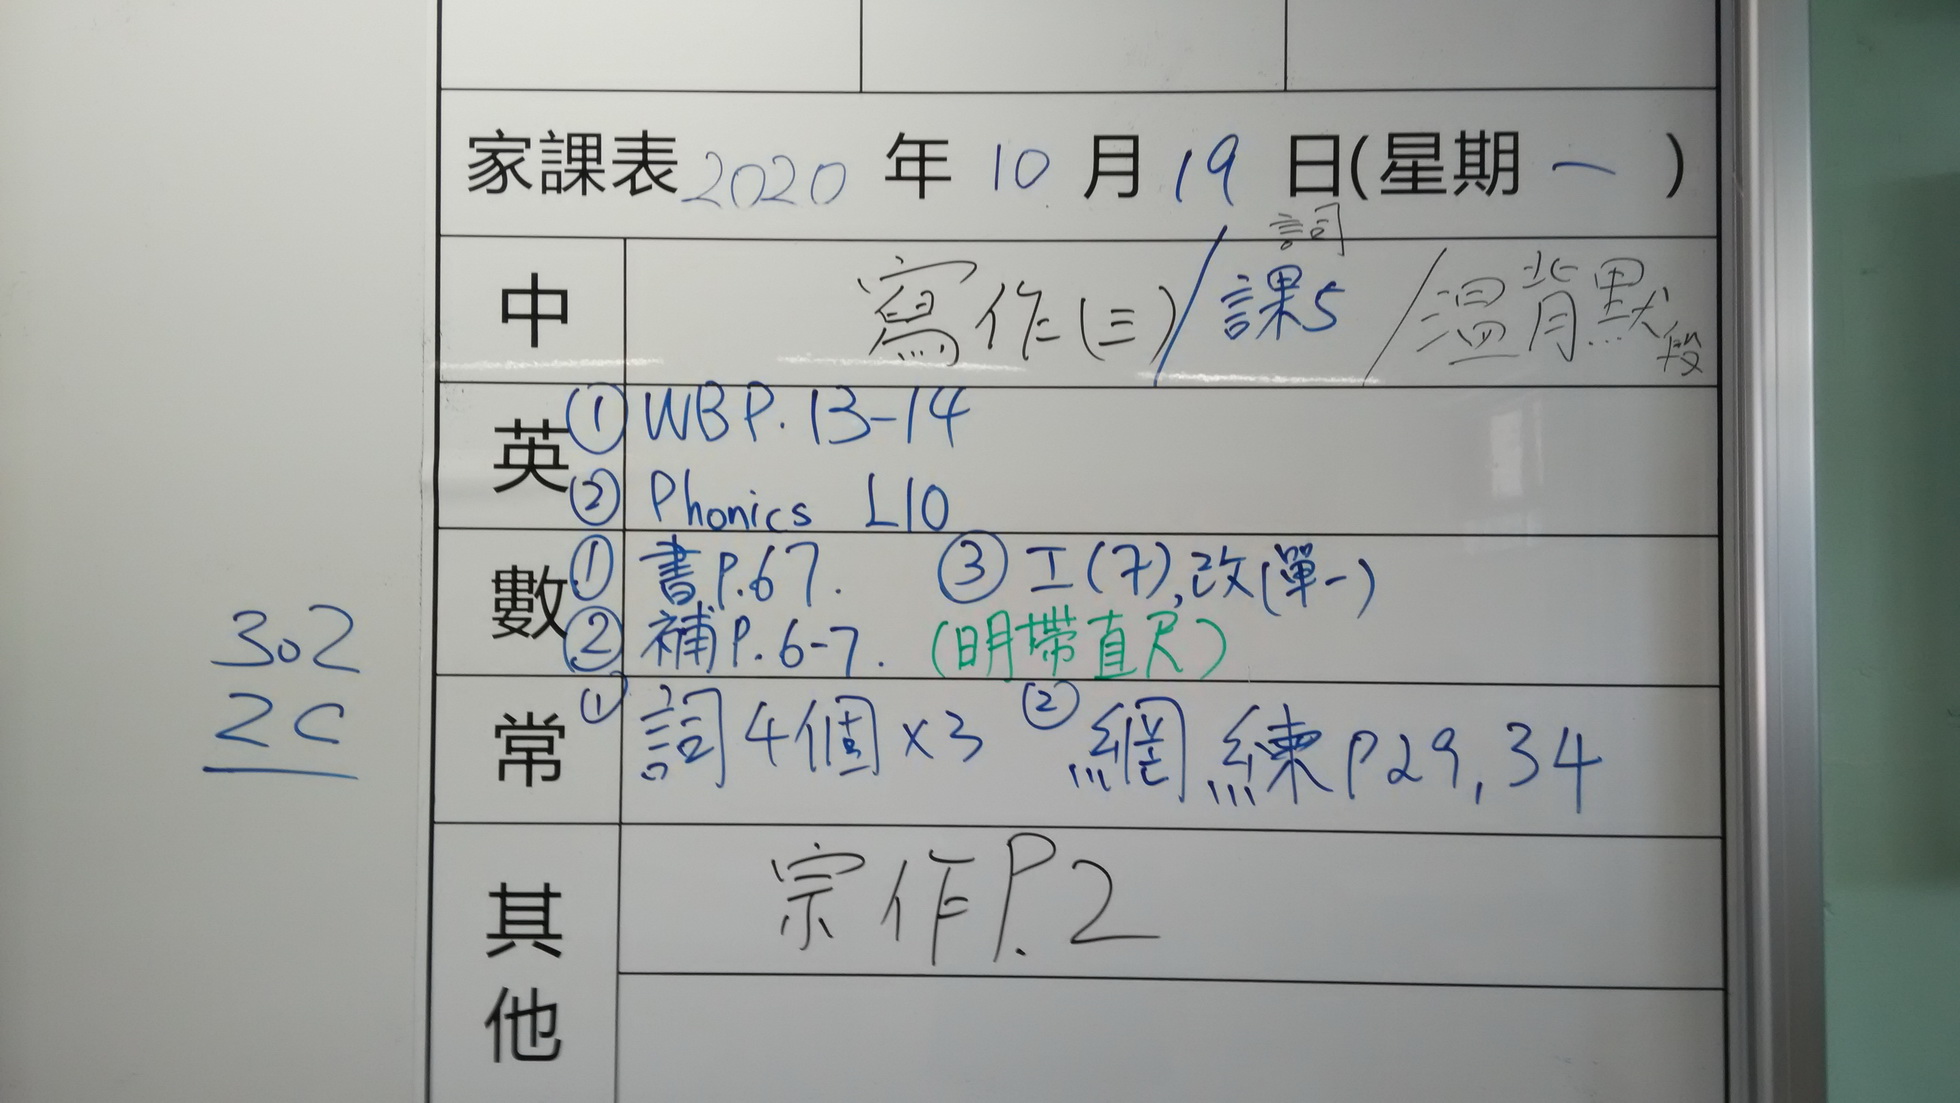 家課表 2020 年 10 月 19 日(星期 一 )
詞
中 寫作(三)/課5/溫背默段
英 ① WB P.13-14
② Phonics L10
數 ① 書P.67. ③ 工(7),改(單一)
② 補P.6-7. (明帶直尺)
常 ① 詞4個×3 ② 網 練P29,34
302
2C
其他 宗作P.2